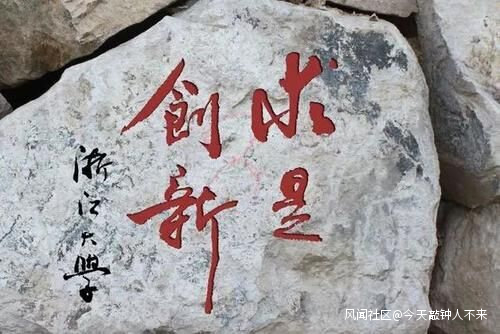 求是
創新
浙江大學
风闻社区@今天敲钟人不来